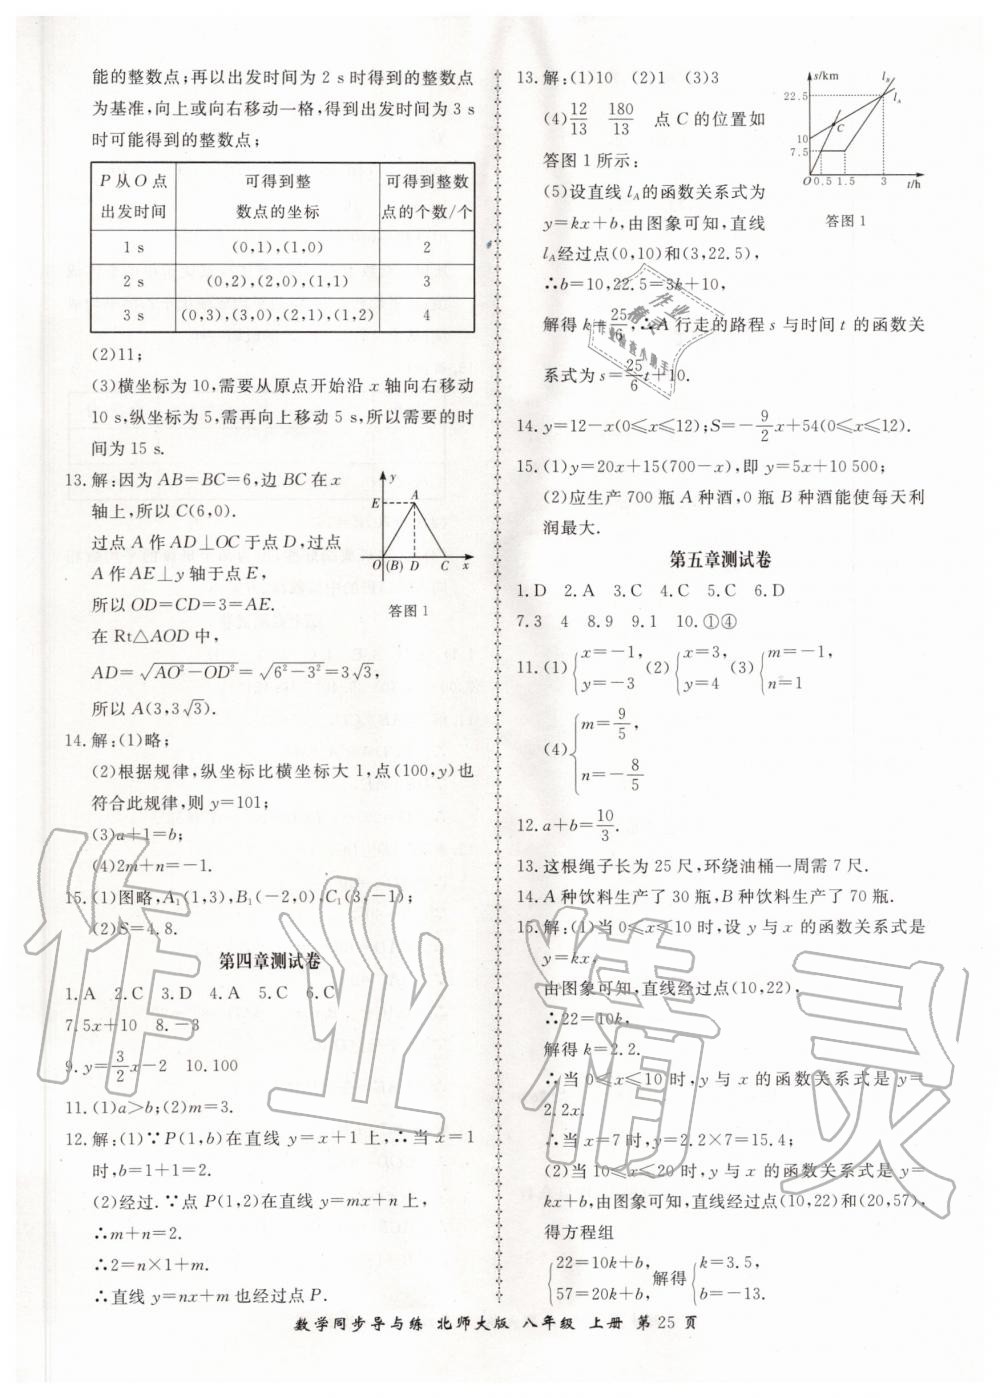 能的整数点;再以出发时间为 2 s 时得到的整数点
为基准,向上或向右移动一格,得到出发时间为 3 s
时可能得到的整数点;
P 从 O 点 可得到整 可得到整数
出发时间 数点的坐标 点的个数/个
1 s (0,1),(1,0) 2
2 s (0,2),(2,0),(1,1) 3
3 s (0,3),(3,0),(2,1),(1,2) 4
(2)11;
(3)横坐标为 10,需要从原点开始沿 x 轴向右移动
10 s,纵坐标为 5,需再向上移动 5 s,所以需要的时
间为 15 s.
13.解:因为 AB=BC=6,边 BC 在 x
轴上,所以 C(6,0).
过点 A 作 AD⊥OC 于点 D,过点
A 作 AE⊥y 轴于点 E,
所以 OD=CD=3=AE.
在 Rt△AOD 中,
AD=√(AO²-OD²)=√(6²-3²)=3√3,
所以 A(3,3√3).
y
E A
O (B) D C x
答图 1
14.解:(1)略;
(2)根据规律,纵坐标比横坐标大 1,点(100,y)也
符合此规律,则 y=101;
(3)a+1=b;
(4)2m+n=-1.
15.(1)图略,A₁(1,3),B₁(-2,0),C₁(3,-1);
(2)S=4.8.
第四章测试卷
1.A 2.C 3.D 4.A 5.C 6.C
7.5x+10 8.-3
9.y=3/2x-2 10.100
11.(1)a>b;(2)m=3.
12.解:(1)∵P(1,b)在直线 y=x+1 上,∴当 x=1
时,b=1+1=2.
(2)经过.∵点 P(1,2)在直线 y=mx+n 上,
∴m+n=2.
∴2=n×1+m.
∴直线 y=nx+m 也经过点 P.
13.解:(1)10 (2)1 (3)3
(4)12/13 180/13 点 C 的位置如
答图 1 所示:
(5)设直线 l_A 的函数关系式为
y=kx+b,由图象可知,直线
l_A 经过点(0,10)和(3,22.5),
∴b=10,22.5=3k+10,
解得 k=25/6,∴A 行走的路程 s 与时间 t 的函数关
系式为 s=25/6t+10.
s/km l_B
22.5 l_A
C
10
7.5
O 0.5 1.5 3 t/h
答图 1
14.y=12-x(0≤x≤12);S=-9/2x+54(0≤x≤12).
15.(1)y=20x+15(700-x),即 y=5x+10 500;
(2)应生产 700 瓶 A 种酒,0 瓶 B 种酒能使每天利
润最大.
第五章测试卷
1.D 2.A 3.C 4.C 5.C 6.D
7.3 4 8.9 9.1 10.①④
11.(1){x=-1, y=-3 (2){x=3, y=4 (3){m=-1, n=1
(4){m=9/5, n=-8/5
12.a+b=10/3.
13.这根绳子长为 25 尺,环绕油桶一周需 7 尺.
14.A 种饮料生产了 30 瓶,B 种饮料生产了 70 瓶.
15.解:(1)当 0≤x≤10 时,设 y 与 x 的函数关系式是
y=kx,
由图象可知,直线经过点(10,22),
∴22=10k,
解得 k=2.2.
∴当 0≤x≤10 时,y 与 x 的函数关系式是 y=
2.2x.
∴当 x=7 时,y=2.2×7=15.4;
(2)当 10≤x≤20 时,y 与 x 的函数关系式是 y=
kx+b,由图象可知,直线经过点(10,22)和(20,57),
得方程组
{22=10k+b, 57=20k+b, 解得{k=3.5, b=-13.
数学同步导与练 北师大版 八年级 上册 第 25 页
作业精灵
作业
精灵